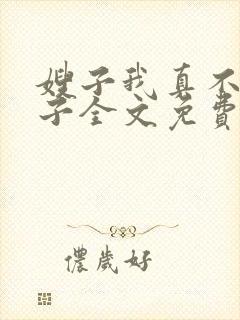 嫂子我真不
子全文免費
儂歲好